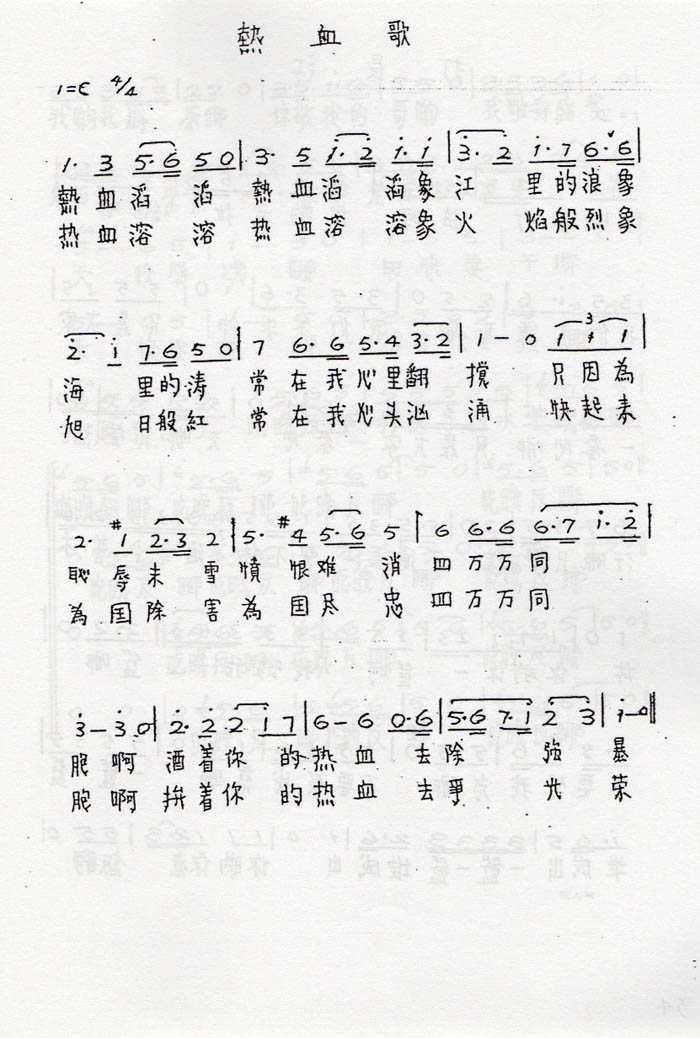 熱血歌
1=C 4/4
1· 3 5·6 5 0 | 3· 5 i·2̇ i·i | 3̇· 2̇ i·7 6·6 |
熱血滔 滔 熱血滔 滔象江 里的浪象
热血溶 溶 热血溶 溶象火 焰般烈象
2̇· i 7·6 5 0 | 7 6·6 5·4 3·2 | 1 - 0 1 1 1 |
海 里的涛 常在我心里翻 搅 只因為
旭 日般紅 常在我心头汹 涌 快起来
2· #1 2·3 2 | 5· #4 5·6 5 | 6 6·6 6·7 i·2̇ |
恥辱未 雪憤 恨难 消 四万万同
為国除 害為 国尽 忠 四万万同
3̇ - 3̇·0 | 2̇·2̇·2̇ i 7 | 6 - 6 0·6 | 5·6 7·i 2̇ 3̇ | i - 0 ‖
胞啊洒着你 的热血 去除 強 暴
胞啊拚着你 的热血 去爭 光 荣